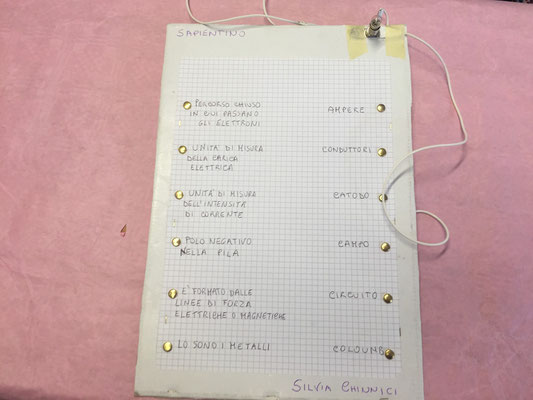 SAPIENTINO
PERCORSO CHIUSO
IN CUI PASSANO
GLI ELETTRONI
AMPERE
UNITÀ DI MISURA
DELLA CARICA
ELETTRICA
CONDUTTORI
UNITÀ DI MISURA
DELL'INTENSITÀ
DI CORRENTE
CATODO
POLO NEGATIVO
NELLA PILA
CAMPO
E' FORMATO DALLE
LINEE DI FORZA
ELETTRICHE O MAGNETICHE
CIRCUITO
LO SONO I METALLI
COLOUMB
SILVIA CHINNICI